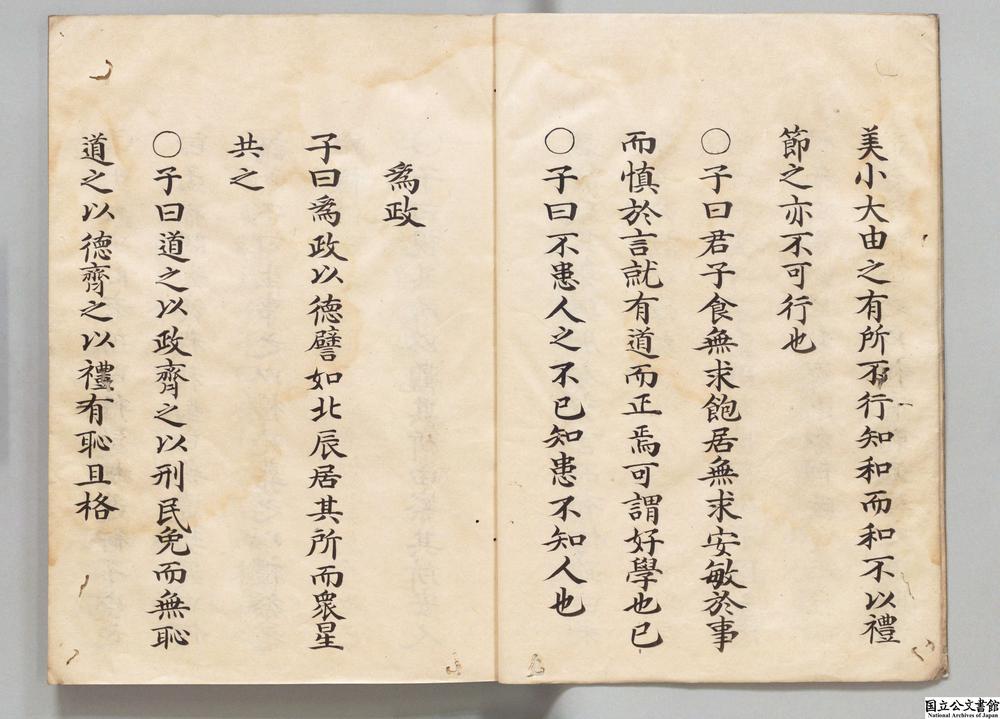 美小大由之有所不行知和而和不以禮
節之亦不可行也
〇子曰君子食無求飽居無求安敏於事
而慎於言就有道而正焉可謂好學也已
〇子曰不患人之不已知患不知人也
爲政
子曰爲政以德譬如北辰居其所而衆星
共之
〇子曰道之以政齊之以刑民免而無恥
道之以德齊之以禮有恥且格
国立公文書館
National Archives of Japan